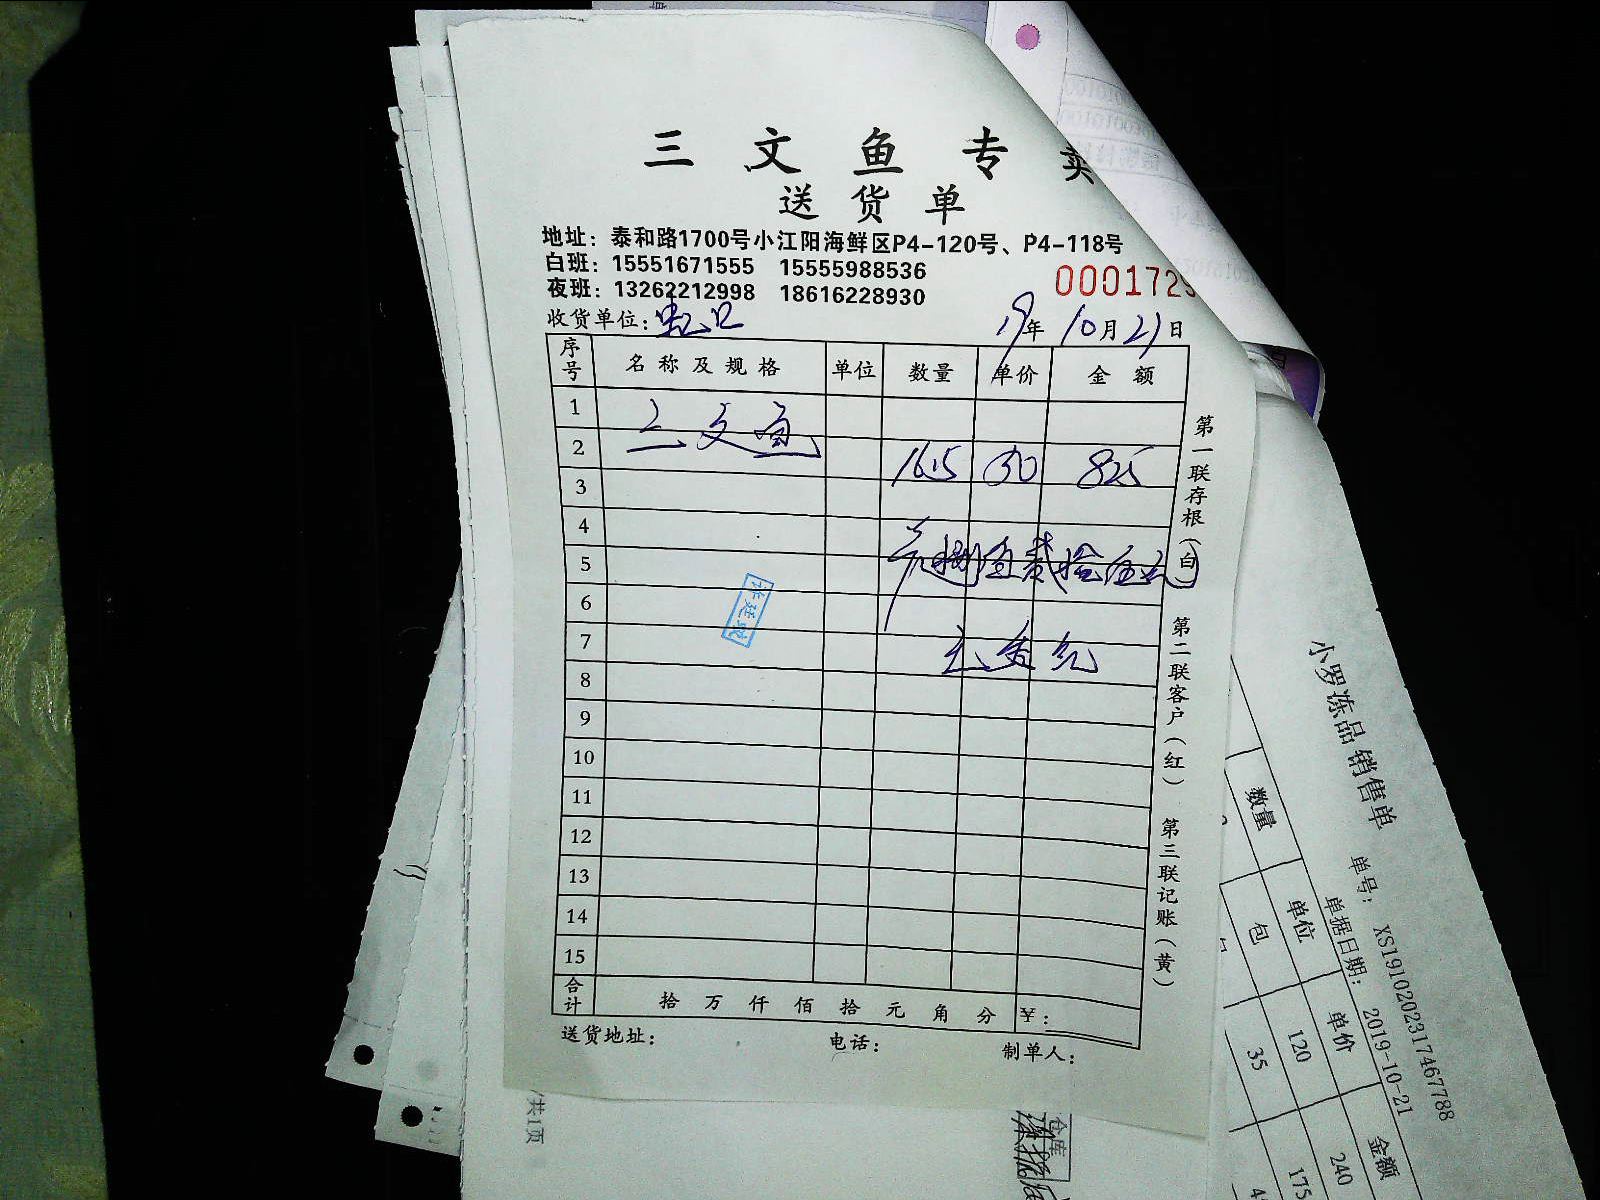 三文鱼专卖
送货单
地址：泰和路1700号小江阳海鲜区P4-120号、P4-118号
白班：15551671555 15555988536
夜班：13262212998 18616228930
000172
收货单位：虹口 19年10月21日
序号 名称及规格 单位 数量 单价 金额
1
2 三文鱼 16.5 50 825
3
4
5 捌佰贰拾伍元
6
7
8
9
10
11
12
13
14
15
合计 拾万仟佰拾元角分 ¥：
送货地址： 电话： 制单人：
第一联存根（白） 第二联客户（红） 第三联记账（黄）
小罗冻品销售单
单号： XS1910202317467788
单据日期： 2019-10-21
数量 单位 单价 金额
包 120 240
35 175
共1页
仓库